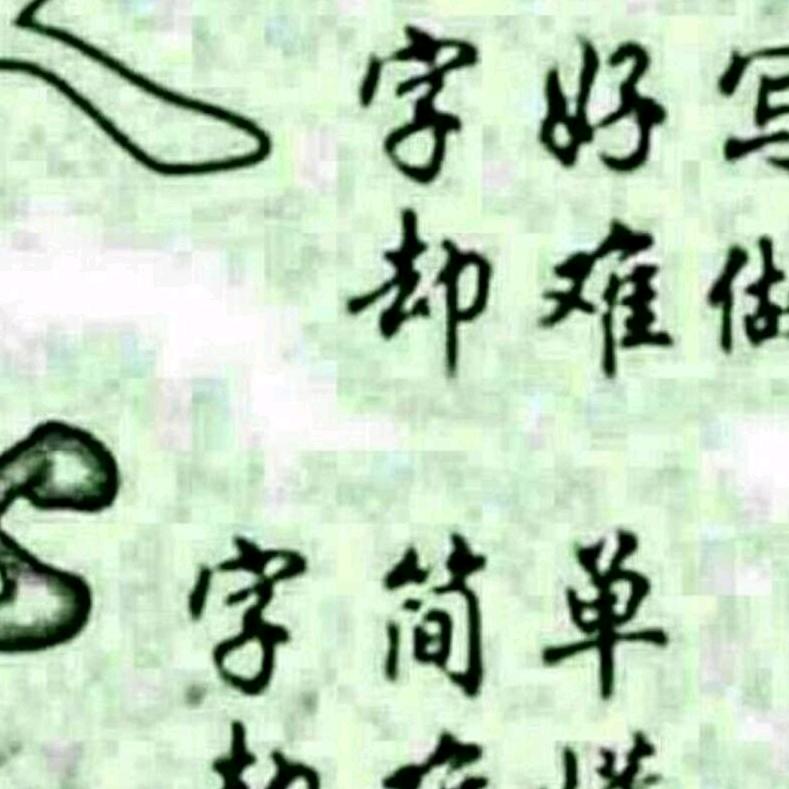 字好写
却难做
字简单
却难